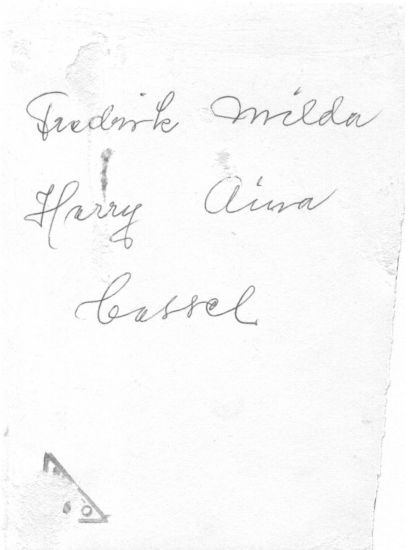 Fredrik Milda
Harry Aina
Cassel